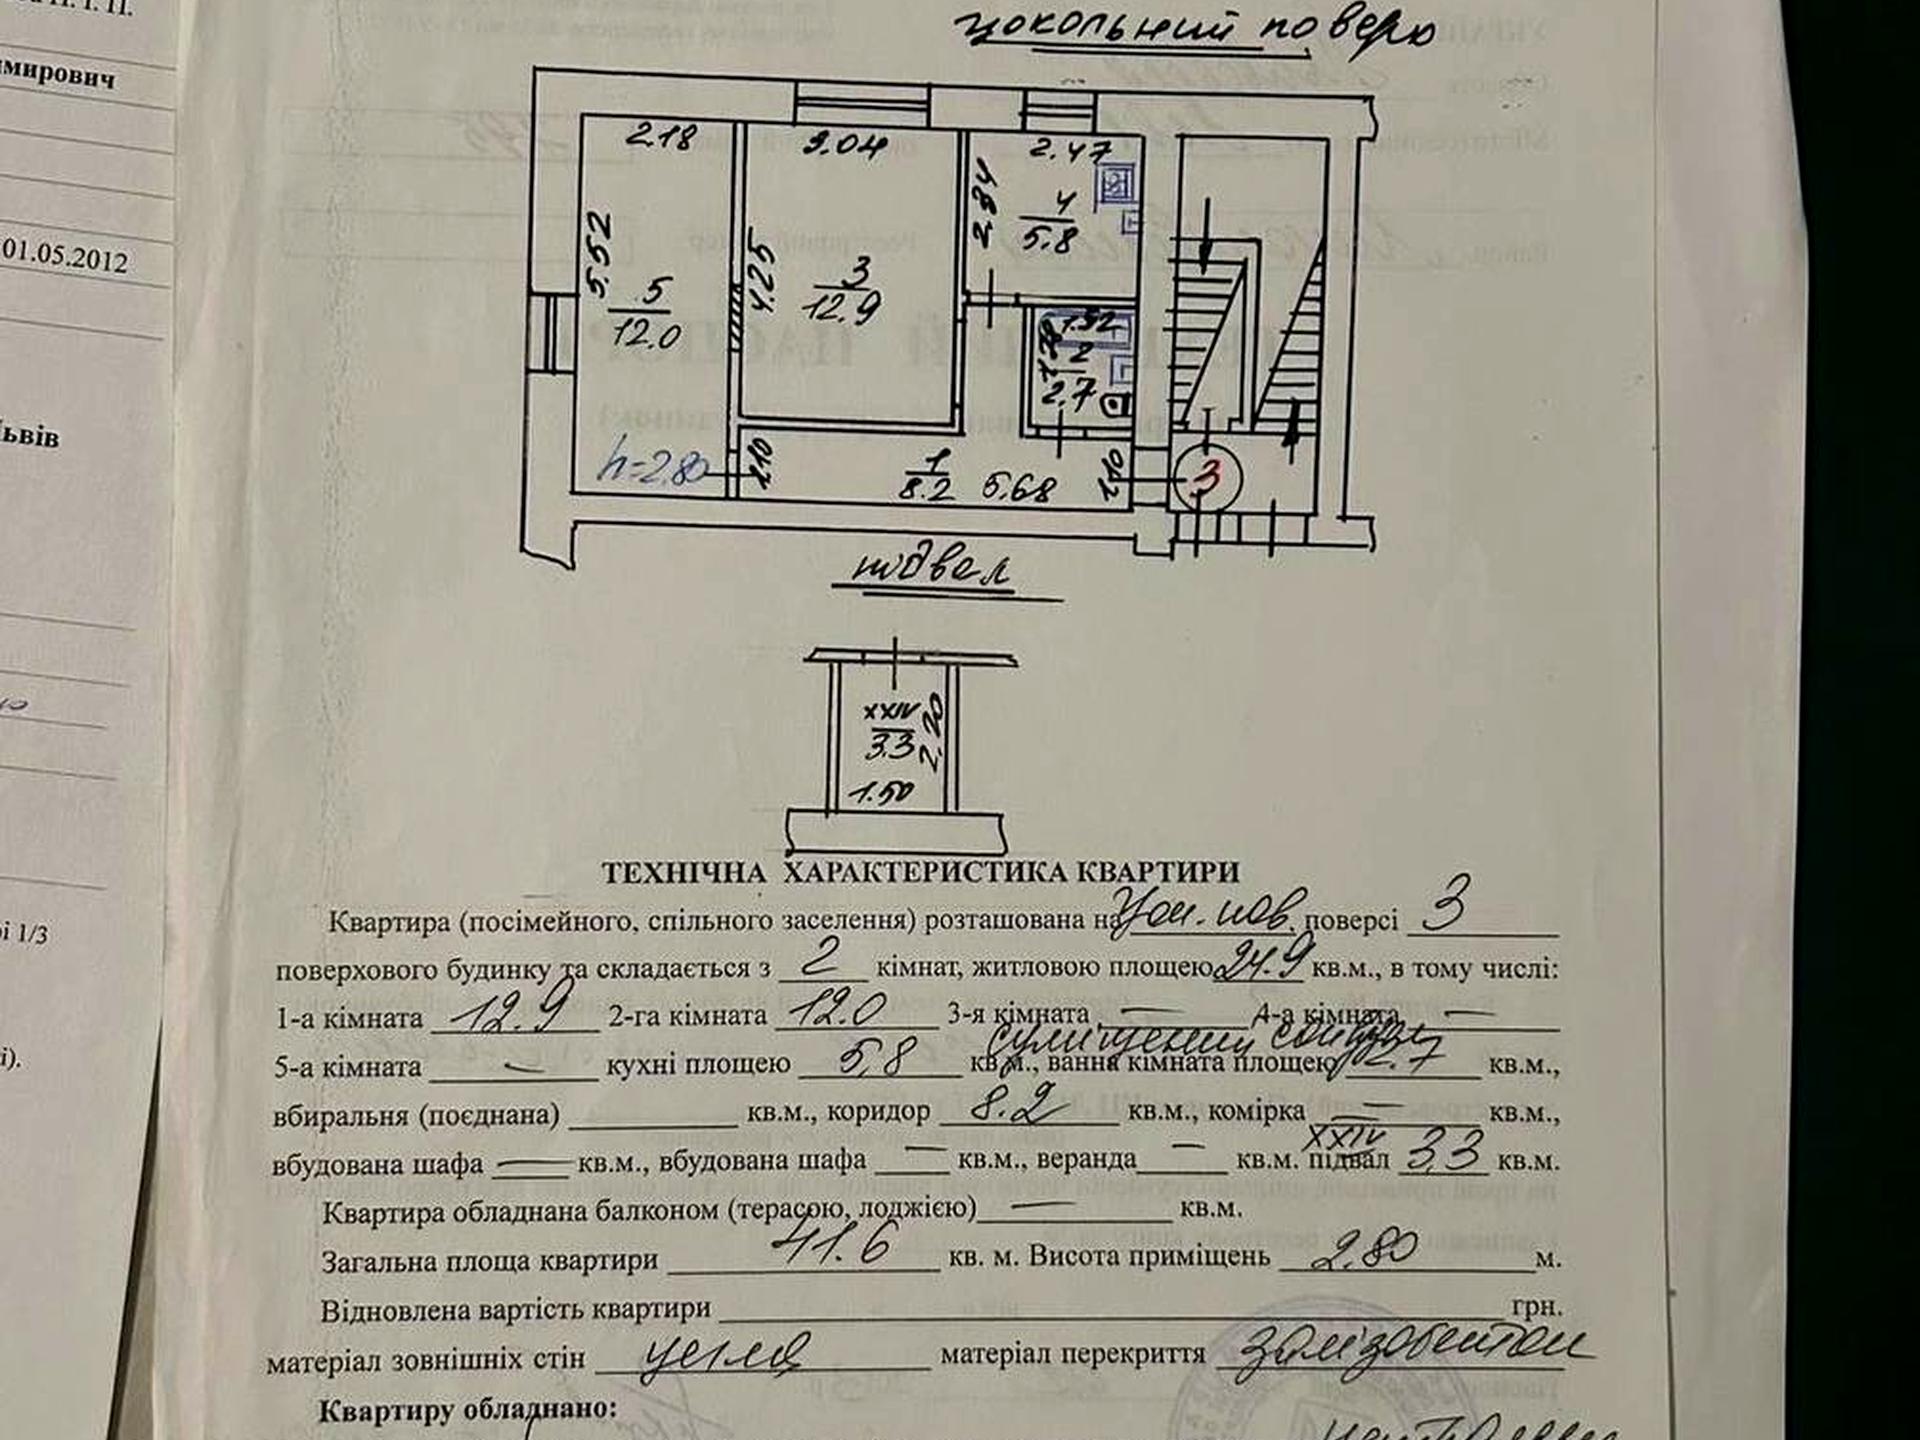 цокольний поверх
мирович
01.05.2012
ьвів
і 1/3
і).
2.18
3.04
2.47
5.52
4.25
2.34
4
5.8
3
12.9
5
12.0
1.52
2
2.7
h=2.80
1.10
1
8.2
5.68
3
підвал
XXIV
3.3
2.20
1.50
ТЕХНІЧНА ХАРАКТЕРИСТИКА КВАРТИРИ
Квартира (посімейного, спільного заселення) розташована на Цок. пов. поверсі 3
поверхового будинку та складається з 2 кімнат, житловою площею 24.9 кв.м., в тому числі:
1-а кімната 12.9 2-га кімната 12.0 3-я кімната — 4-а кімната —
суміщений санвузол
5-а кімната — кухні площею 5,8 кв.м., ванна кімната площею 2.7 кв.м.,
вбиральня (поєднана) кв.м., коридор 8.2 кв.м., комірка — кв.м.,
вбудована шафа — кв.м., вбудована шафа — кв.м., веранда — кв.м. XXIV підвал 3,3 кв.м.
Квартира обладнана балконом (терасою, лоджією) — кв.м.
Загальна площа квартири 41.6 кв. м. Висота приміщень 2.80 м.
Відновлена вартість квартири грн.
матеріал зовнішніх стін цегла матеріал перекриття залізобетон
Квартиру обладнано: